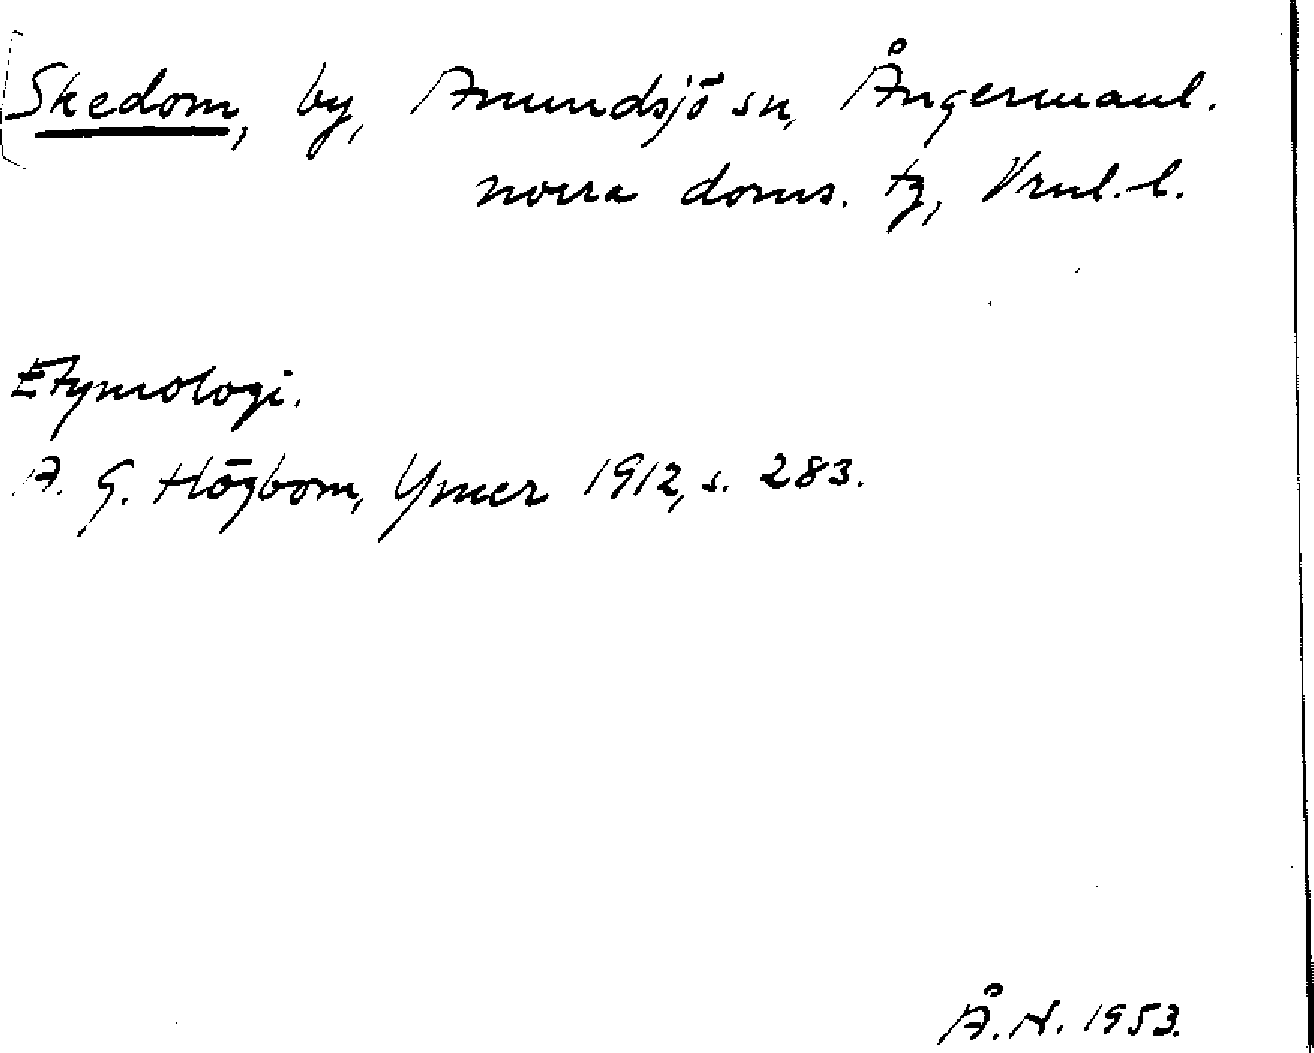 Skedom, by, Anundsjö sn, Ångermanl.
norra doms. tg, Vrnl. l.
Etymologi.
A. G. Högbom, Ymer 1912, s. 283.
Å. N. 1953.